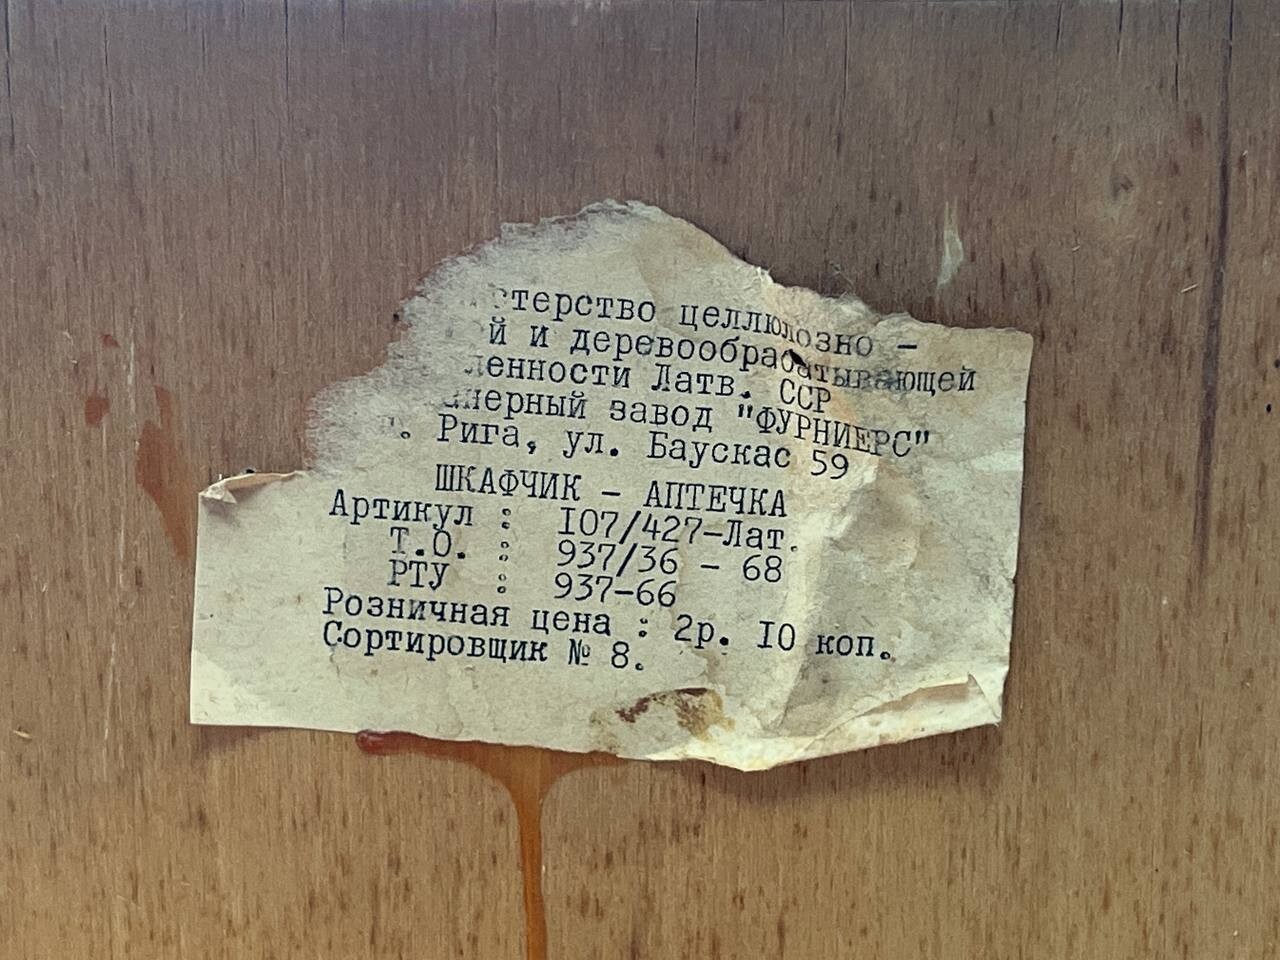 стерство целлюлозно -
й и деревообрабатывающей
ленности Латв. ССР
анерный завод "ФУРНИЕРС"
. Рига, ул. Баускас 59
ШКАФЧИК - АПТЕЧКА
Артикул : I07/427-Лат.
Т.О. : 937/36 - 68
РТУ : 937-66
Розничная цена : 2р. I0 коп.
Сортировщик № 8.